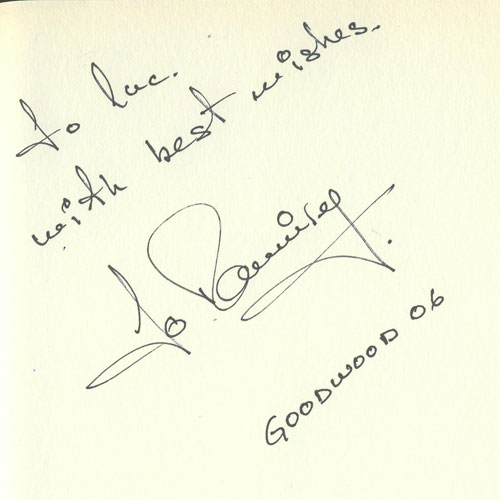 To Luc.
with best wishes.
Jo Ramirez.
GOODWOOD 06